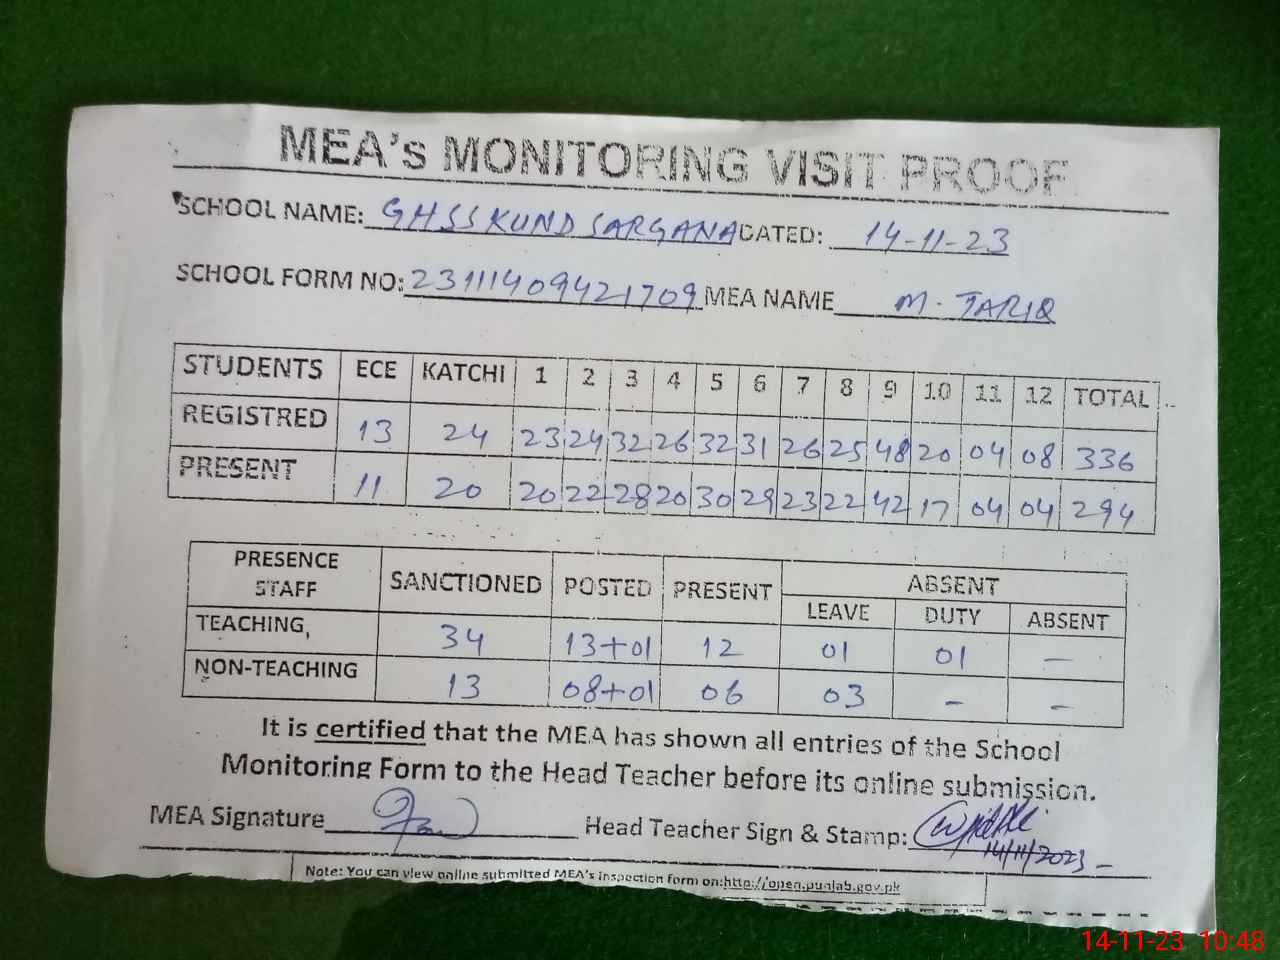 MEA's MONITORING VISIT PROOF
SCHOOL NAME: GHSS KUND SARGANA DATED: 14-11-23
SCHOOL FORM NO: 23111409421709 MEA NAME M. TARIQ
STUDENTS ECE KATCHI 1 2 3 4 5 6 7 8 9 10 11 12 TOTAL
REGISTRED 13 24 23 24 32 26 32 31 26 25 48 20 04 08 336
PRESENT 11 20 20 22 28 20 30 29 23 22 42 17 04 04 294
PRESENCE STAFF SANCTIONED POSTED PRESENT ABSENT
LEAVE DUTY ABSENT
TEACHING, 34 13+01 12 01 01 —
NON-TEACHING 13 08+01 06 03 - -
It is certified that the MEA has shown all entries of the School
Monitoring Form to the Head Teacher before its online submission.
MEA Signature Head Teacher Sign & Stamp:
14/11/2023
Note: You can view online submitted MEA's inspection form on:http://open.punjab.gov.pk
14-11-23 10:48